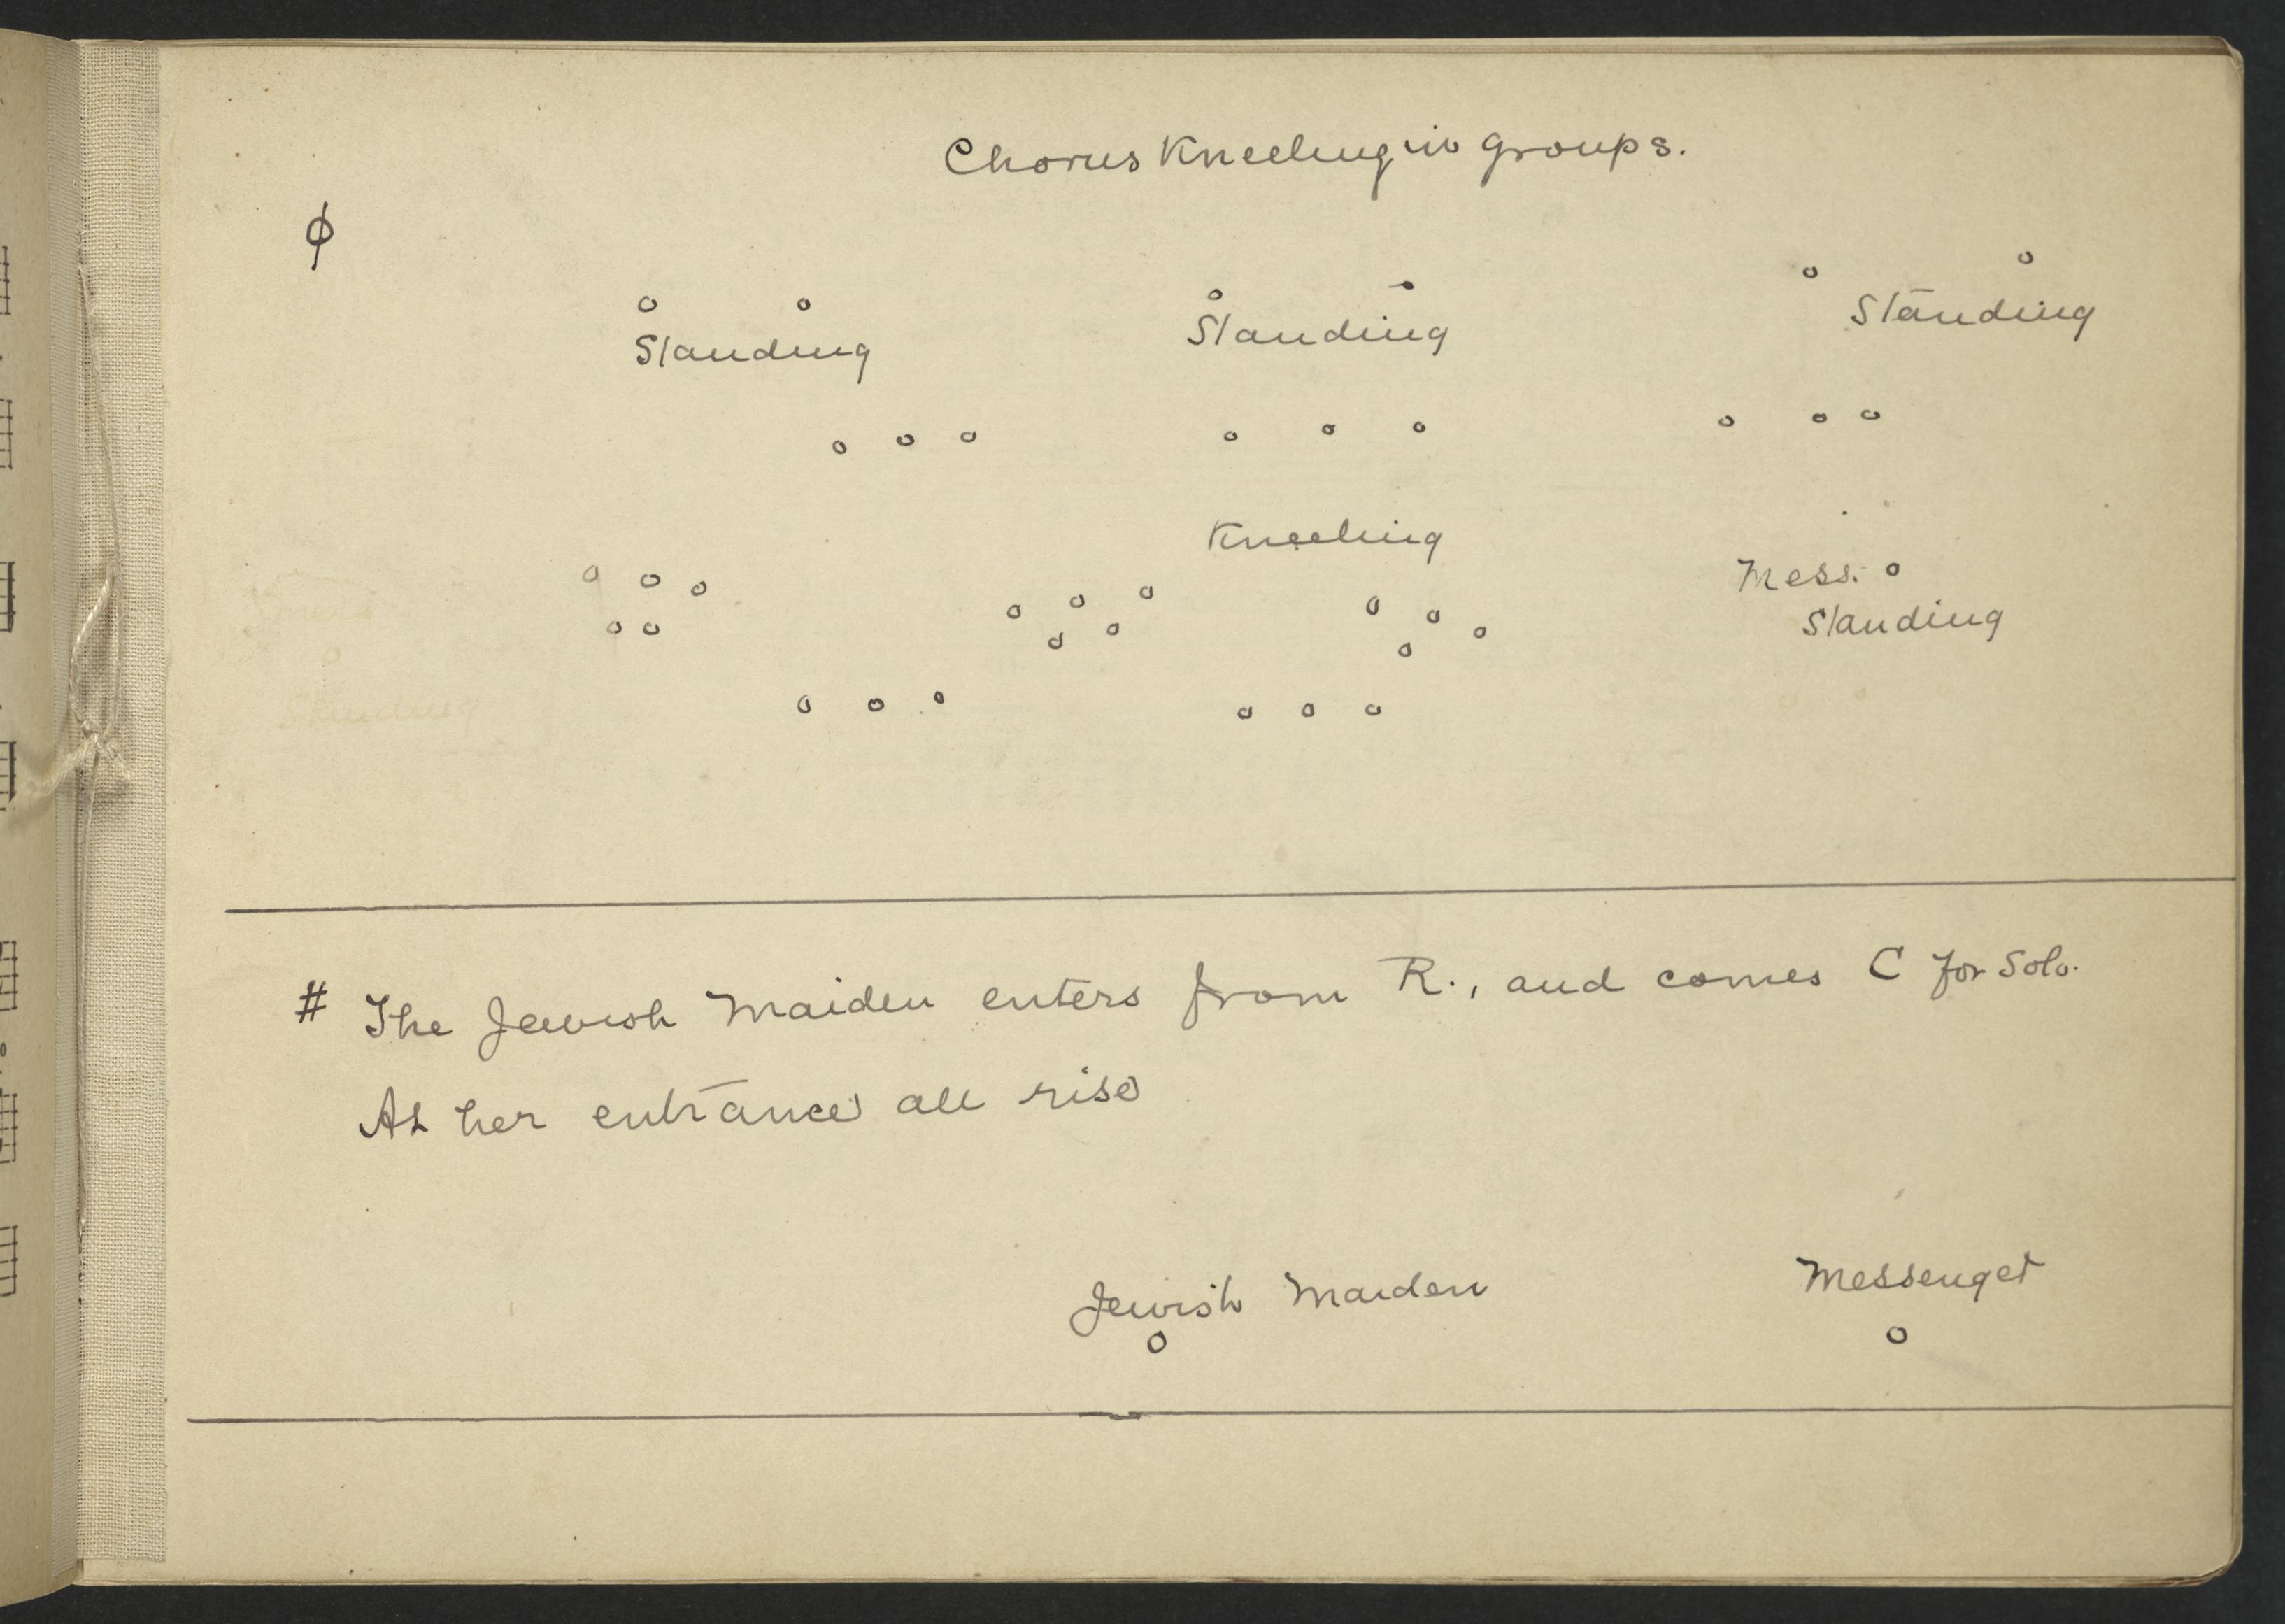 Chorus Kneeling in groups.
ϕ
Standing
Standing
Standing
Kneeling
Mess.
Standing
Standing
# The Jewish Maiden enters from R., and comes C for Solo.
At her entrance all rise
Jewish Maiden
Messenger